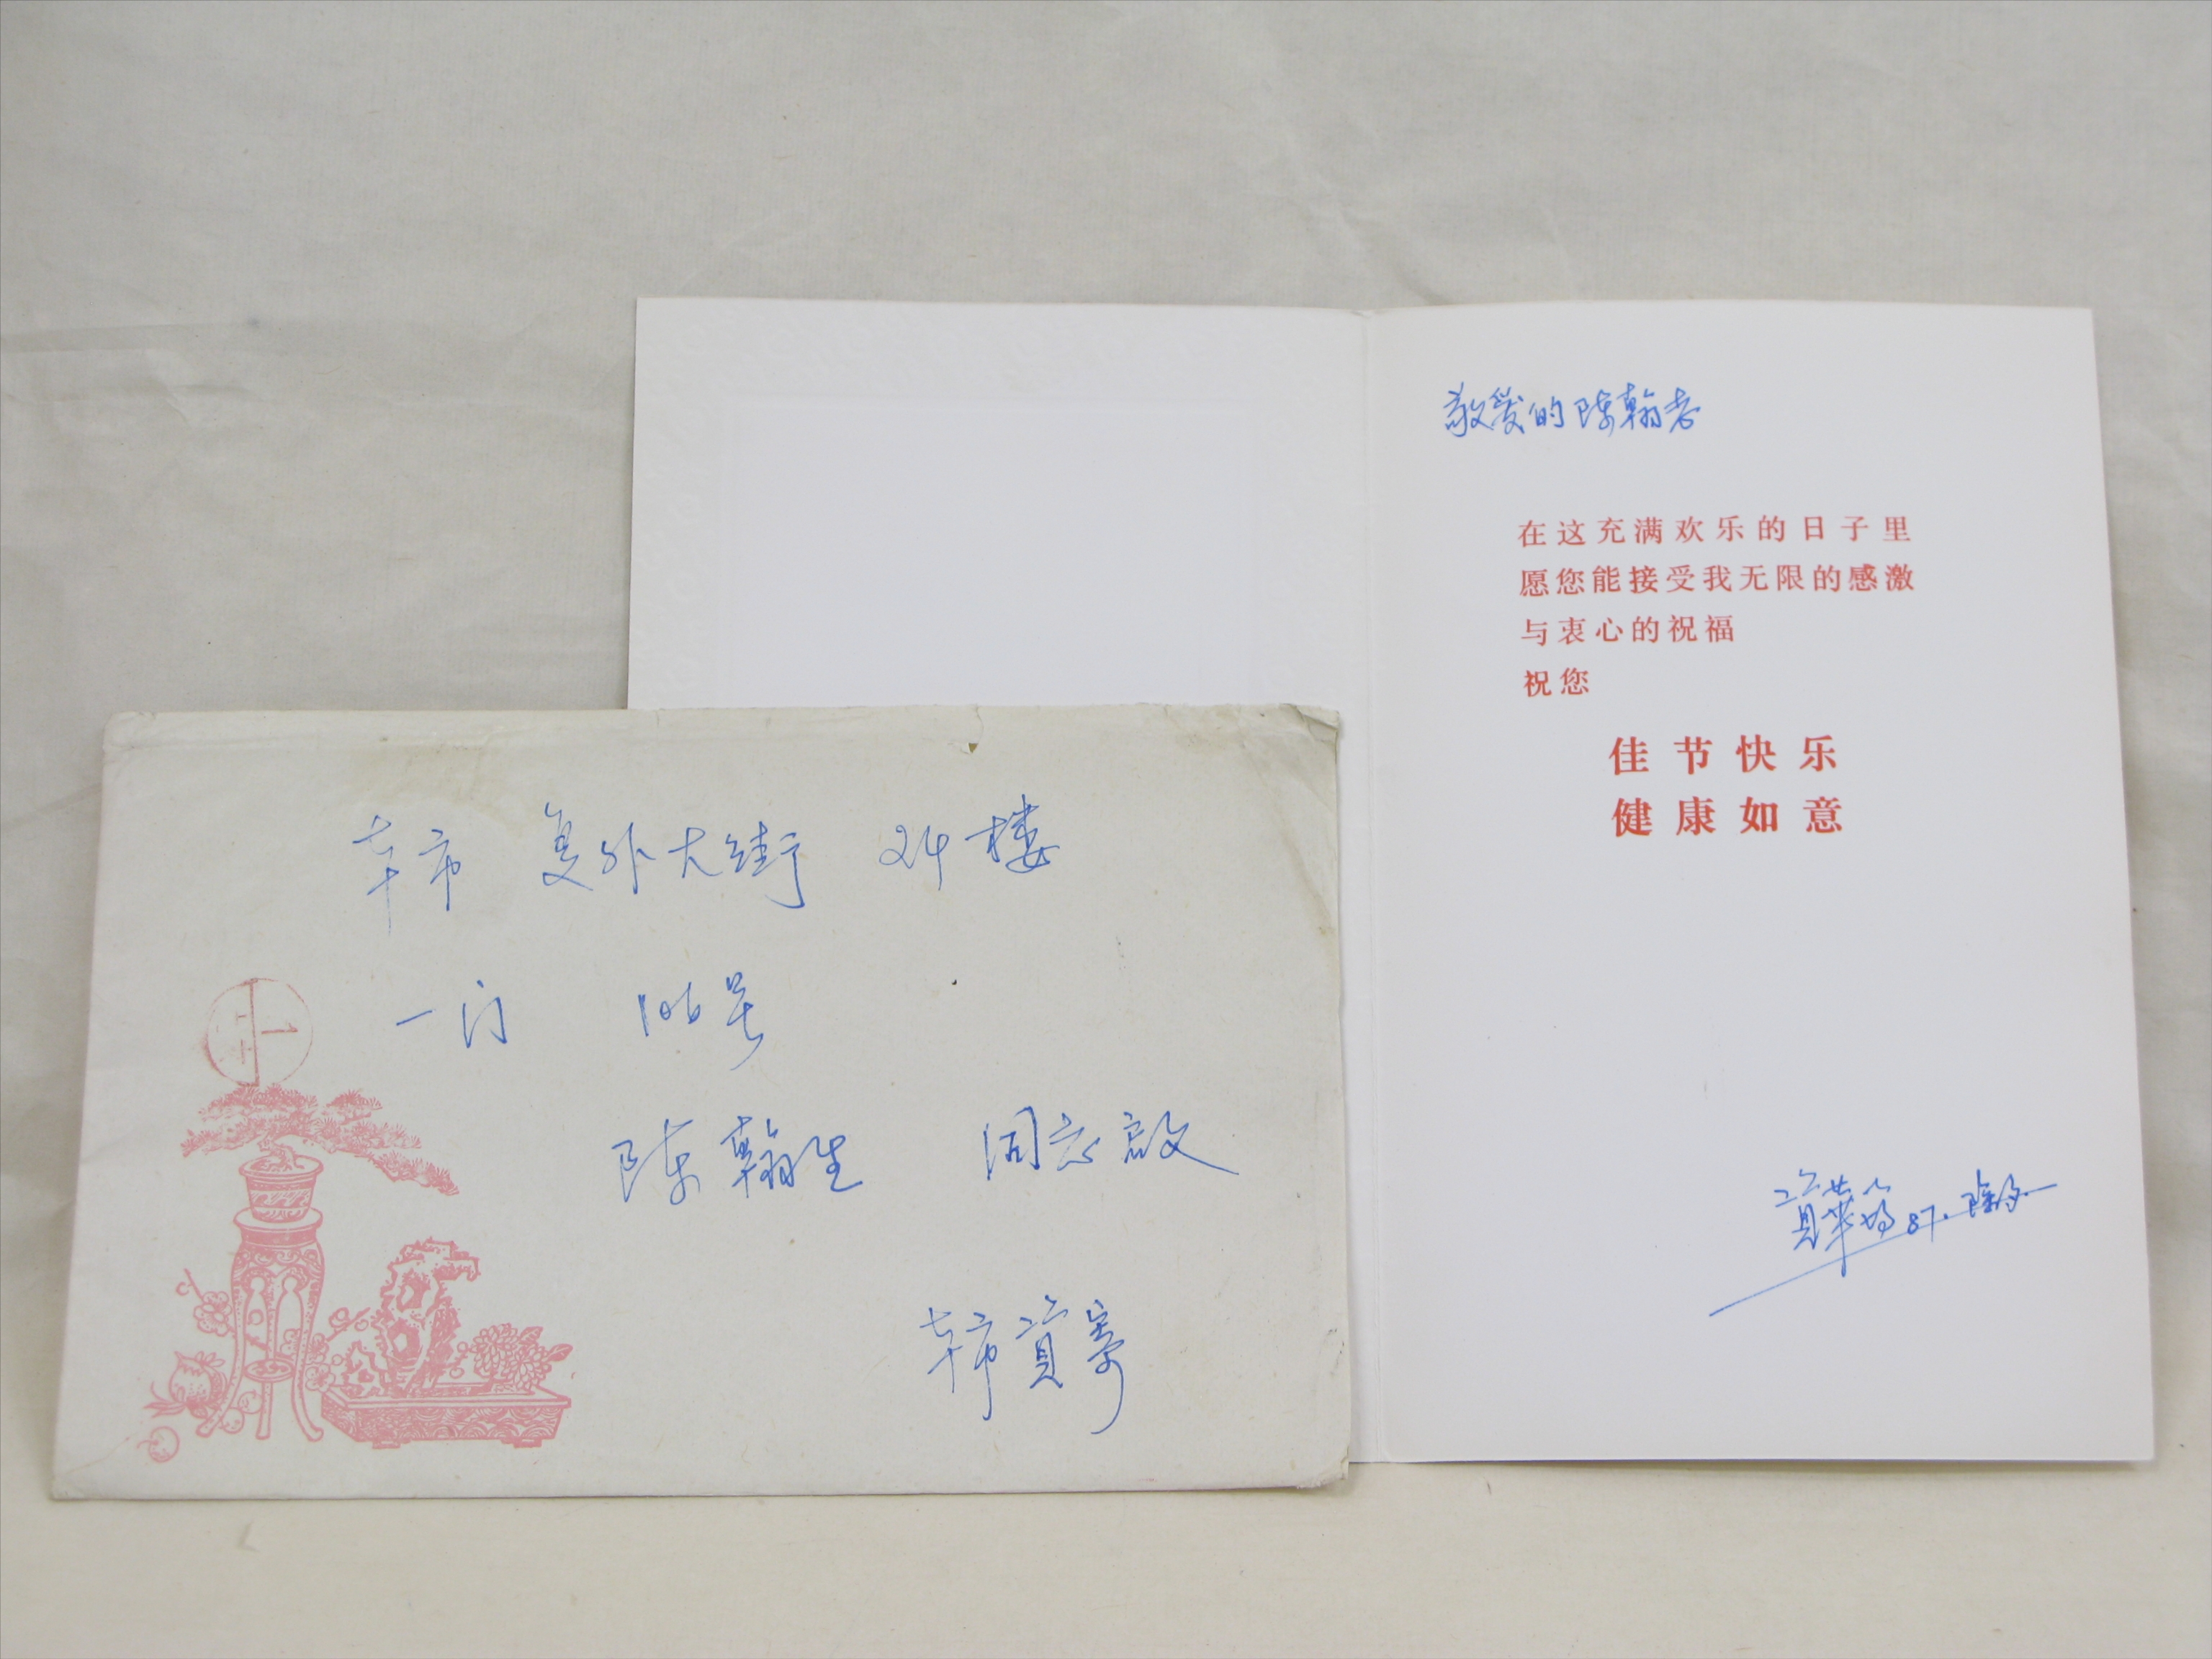 本市 复外大街 24楼
一门 105号
陈翰笙 同志启
本市 資寄
敬爱的陈翰老
在这充满欢乐的日子里
愿您能接受我无限的感激
与衷心的祝福
祝您
佳节快乐
健康如意
資華筠 87.除夕